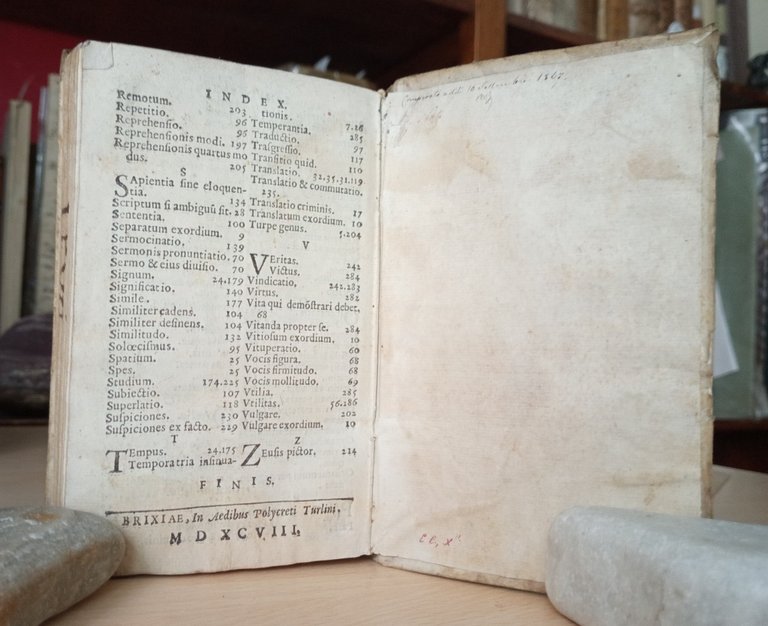 INDEX.
Remotum. 203
Repetitio. 96
Reprehensio. 96
Reprehensionis modi. 197
Reprehensionis quartus mo
dus. 205
S
SApientia sine eloquen-
tia. 134
Scriptum si ambiguū sit. 28
Sententia. 100
Separatum exordium. 9
Sermocinatio. 139
Sermonis pronuntiatio. 70
Sermo & eius diuisio. 70
Signum. 24.179
Significatio. 140
Simile. 177
Similiter cadens. 104
Similiter desinens. 104
Similitudo. 132
Solœcismus. 95
Spatium. 25
Spes. 25
Studium. 174.225
Subiectio. 107
Superlatio. 118
Suspiciones. 230
Suspiciones ex facto. 229
T
TEmpus. 24.175
Temporatria insinua-
tionis. 7.26
Temperantia. 285
Traductio. 97
Trasgressio. 117
Transitio quid. 110
Translatio. 32.35.31.119
Translatio & commutatio.
235.
Translatio criminis. 17
Translatum exordium. 10
Turpe genus. 5.204
V
VEritas. 242
Victus. 284
Vindicatio. 242.283
Virtus. 282
Vita qui demōstrari debet.
68
Vitanda propter se. 284
Vitiosum exordium. 10
Vituperatio. 60
Vocis figura. 68
Vocis firmitudo. 68
Vocis mollitudo. 69
Vtilia. 285
Vtilitas. 56.286
Vulgare. 202
Vulgare exordium. 10
Z
ZEusis pictor. 214
FINIS.
BRIXIAE, In Aedibus Polycreti Turlini,
MDXCVIII.